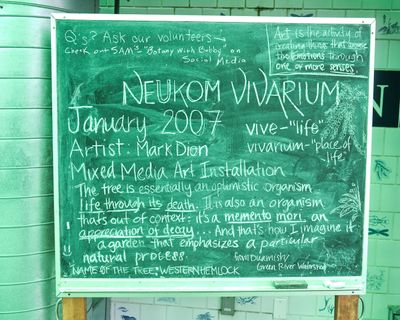 Q's? Ask our volunteers →
Check out SAM's "Botany with Bobby" on
Social Media
Art is the activity of
creating things that arouse
the emotions through
one or more senses.
NEUKOM VIVARIUM
January 2007
vive - "life"
Artist: Mark Dion
vivarium - "place of
life"
Mixed Media Art Installation
The tree is essentially an optimistic organism
life through its death. It is also an organism
thats out of context: it's a memento mori, an
appreciation of decay... And that's how I imagine it
a garden that emphasizes a particular
natural process.
from Duwamish/
Green River Watershed
NAME OF THE TREE: WESTERN HEMLOCK
N